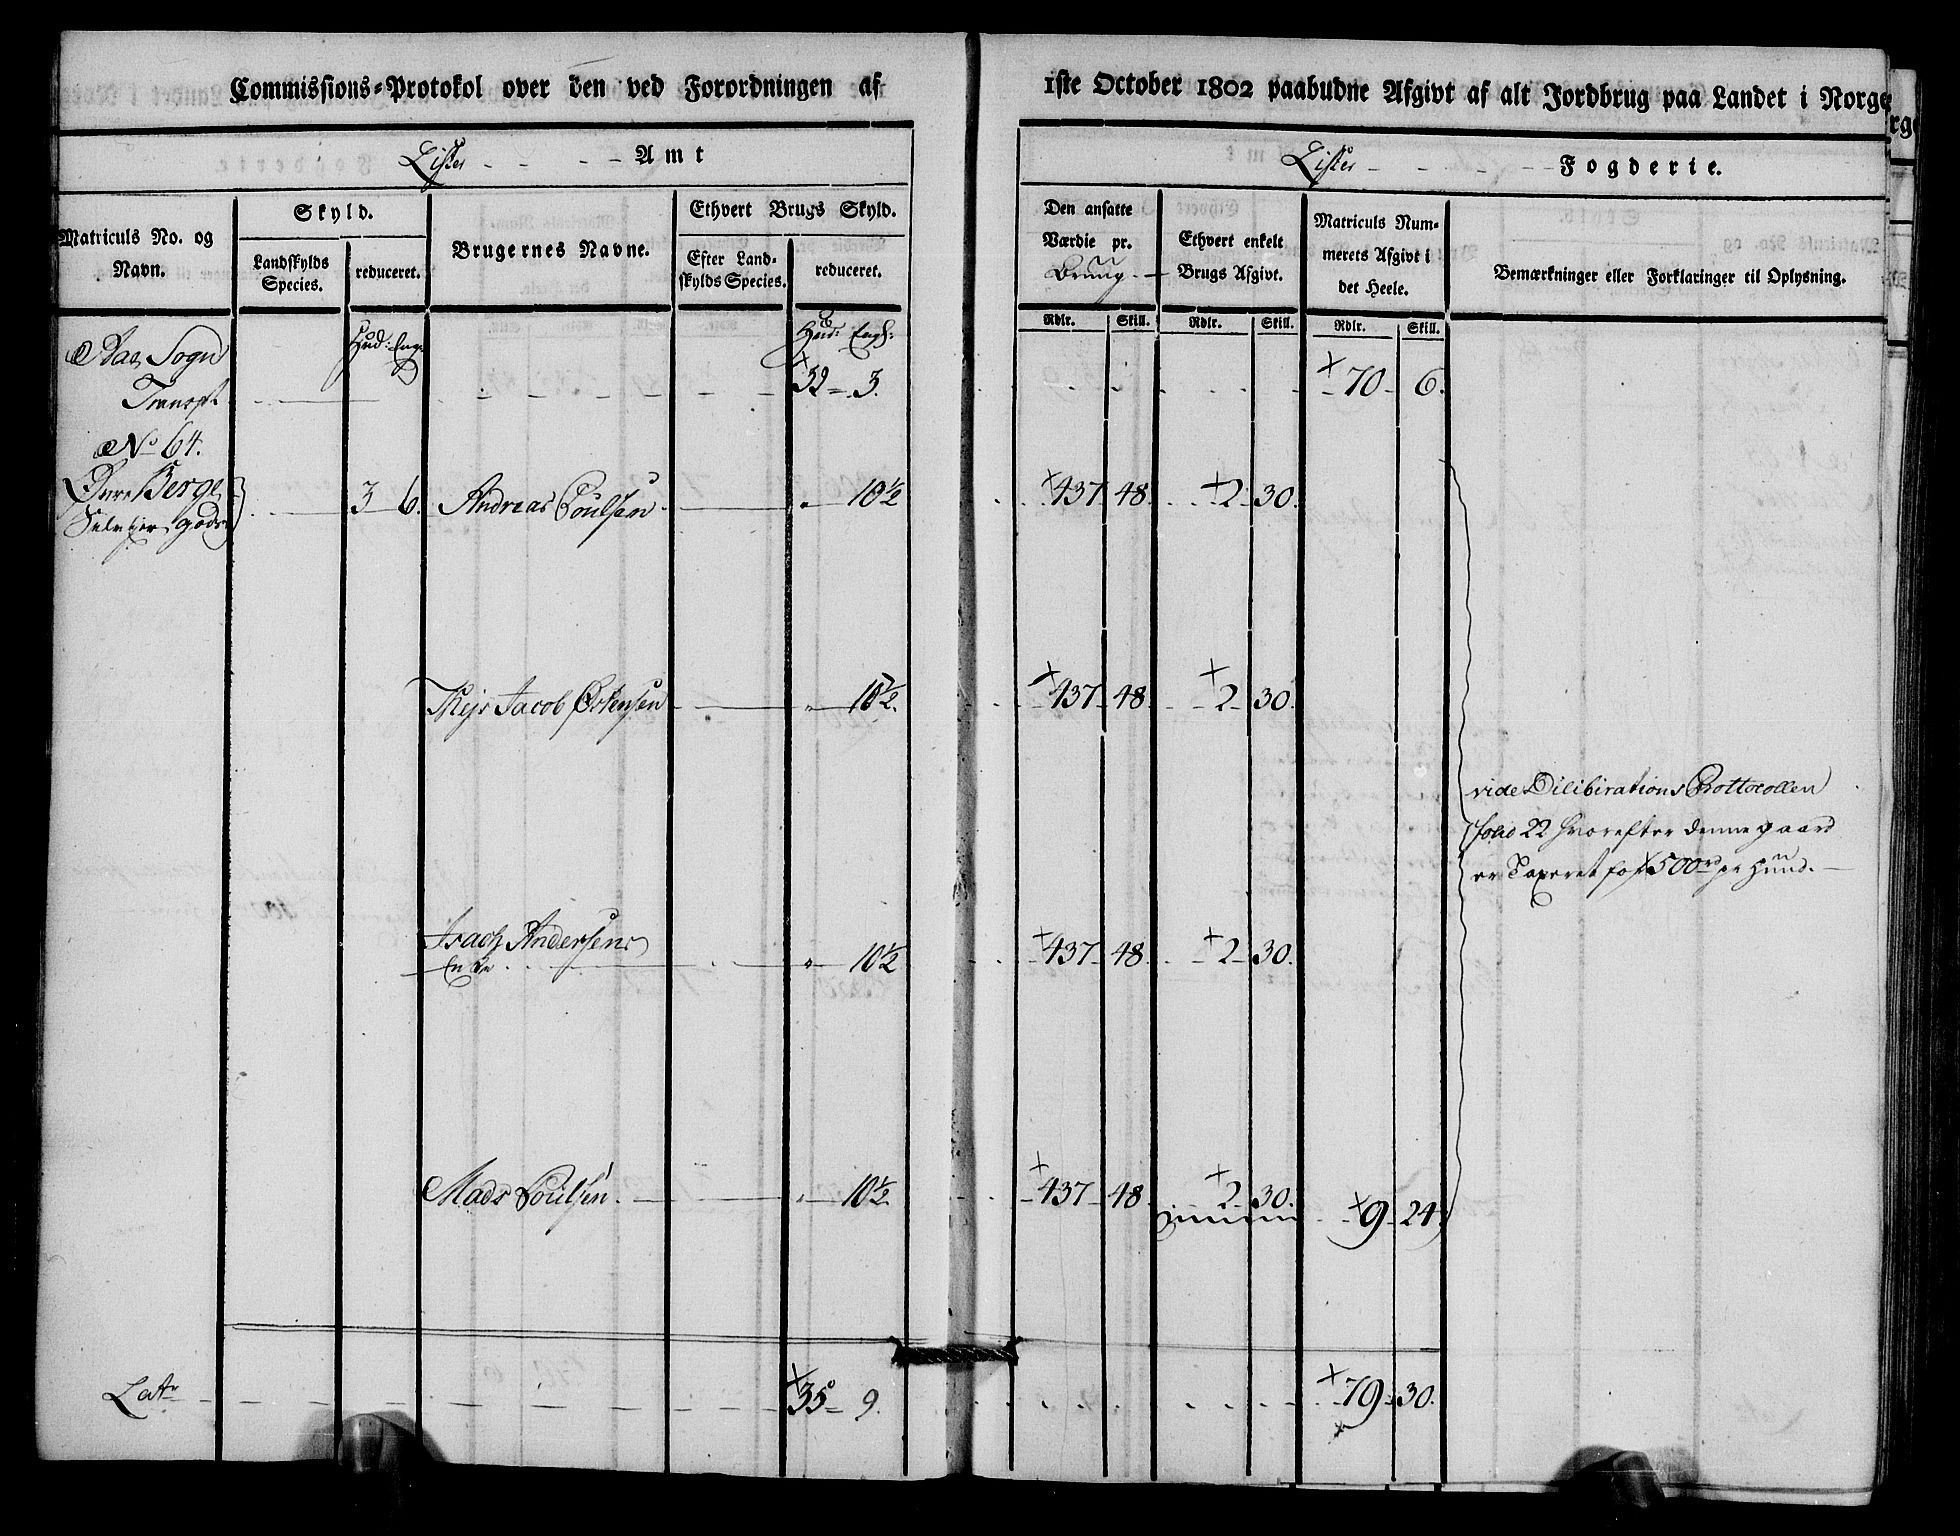 Commissions-Protokol over den ved Forordningen af 1ste October 1802 paabudne Afgivt af alt Jordbrug paa Landet i Norge
Lister Amt
Lister Fogderie.
Matriculs No. og Navn.
Skyld.
Landskylds Species.
reduceret.
Brugernes Navne.
Ethvert Brugs Skyld.
Efter Landskylds Species.
reduceret.
Den ansatte Værdie pr. Brug.
Ethvert enkelt Brugs Afgivt.
Matriculs Nummerets Afgivt i det Heele.
Bemærkninger eller Forklaringer til Oplysning.
Rdlr. Skill. Rdlr. Skill. Rdlr. Skill.
Hud: Eng:
Hud: Engl:
Aas Sogn
Transpt 32 3. 70 6.
No 64.
Øvre Berge 3 6. Andreas Poulsen 10½ 437 48. 2 30.
Selveier gods
Thys Jacob 10½. 437 48. 2 30.
Isach Andersens
Enke 10½ 437 48. 2 30.
Mads Poulsen. 10½. 437 48. 2 30. 9 24.
vide Dilibirations Prottocollen
folio 22 hvorefter denne gaard
er Taxeret for 500rd pr Hund.
Latr 35 9. 79 30.